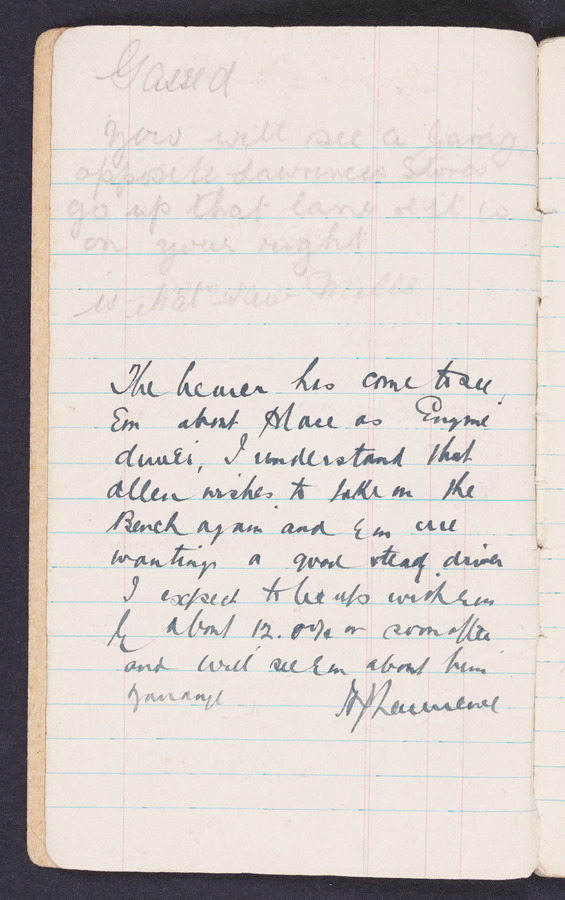 Gassed
You will see a Garage
opposite Lawrences Stores
go up that lane & it is
on your right
is that Saw Mills
The bearer has come to see
Em about Place as Engine
driver, I understand that
Allen wishes to take on the
Bench again and Em are
wanting a good steady driver
I expect to be up with Em
by about 12. or soon after
and will see Em about him
Lawrence